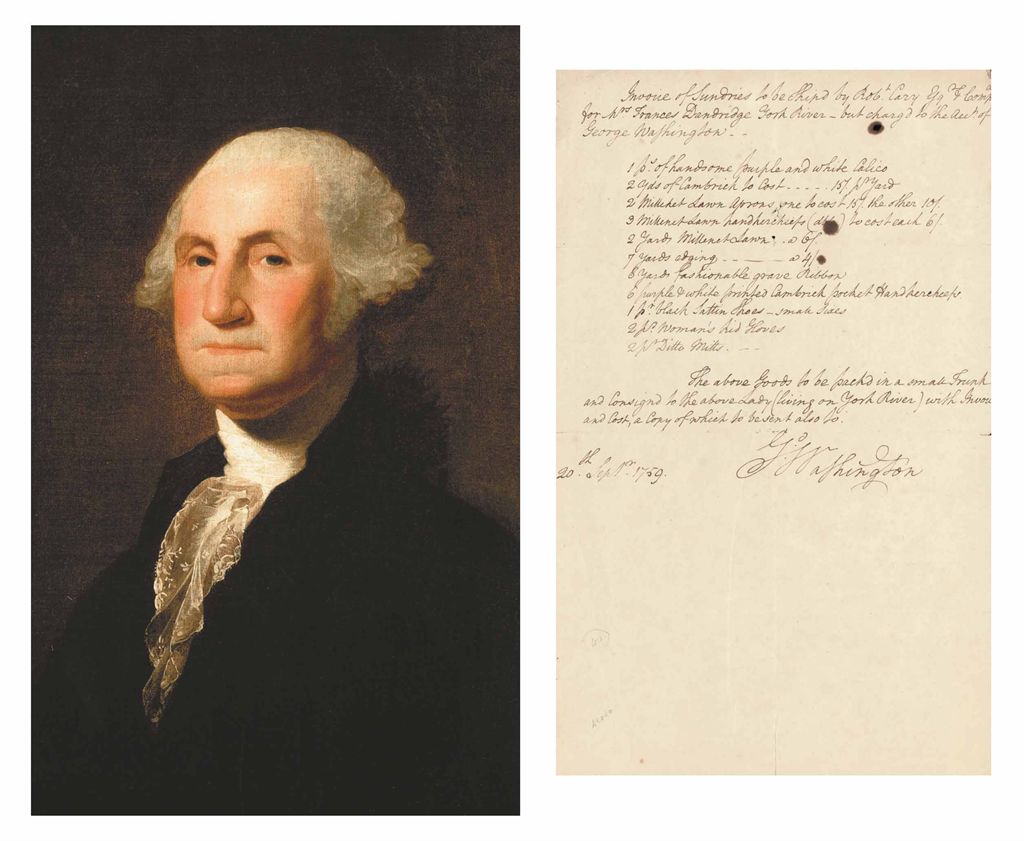 Invoice of Sundries to be Shipd by Robt. Cary Esqr. & Compa
for Mrs Frances Dandridge York River – but chargd to the Acct. of
George Washington. –
1 ps. of handsome purple and white Calico
2 yds of Cambrick to Cost . . . . . 15/. pr Yard
2 Millenet Lawn Aprons, one to cost 15/. the other 10/.
3 Millenet Lawn handkercheifs (ditto) to cost each 6/.
2 Yards Millenet Lawn . a 6/.
7 yards edging . . – – – . . a 4/
8 Yards fashionable grave Ribbon
6 purple & white printed Cambrick pocket Handkercheifs
1 pr. black Sattin Shoes – small sizes
2 pr. Woman's Kid Gloves
2 pr Ditto Mitts. –
The above Goods to be packd in a small Trunk
and Consignd to the above Lady (living on York River) with Invoi
and Cost, a Copy of which to be sent also to.
Go. Washington
20th. Septr. 1759.